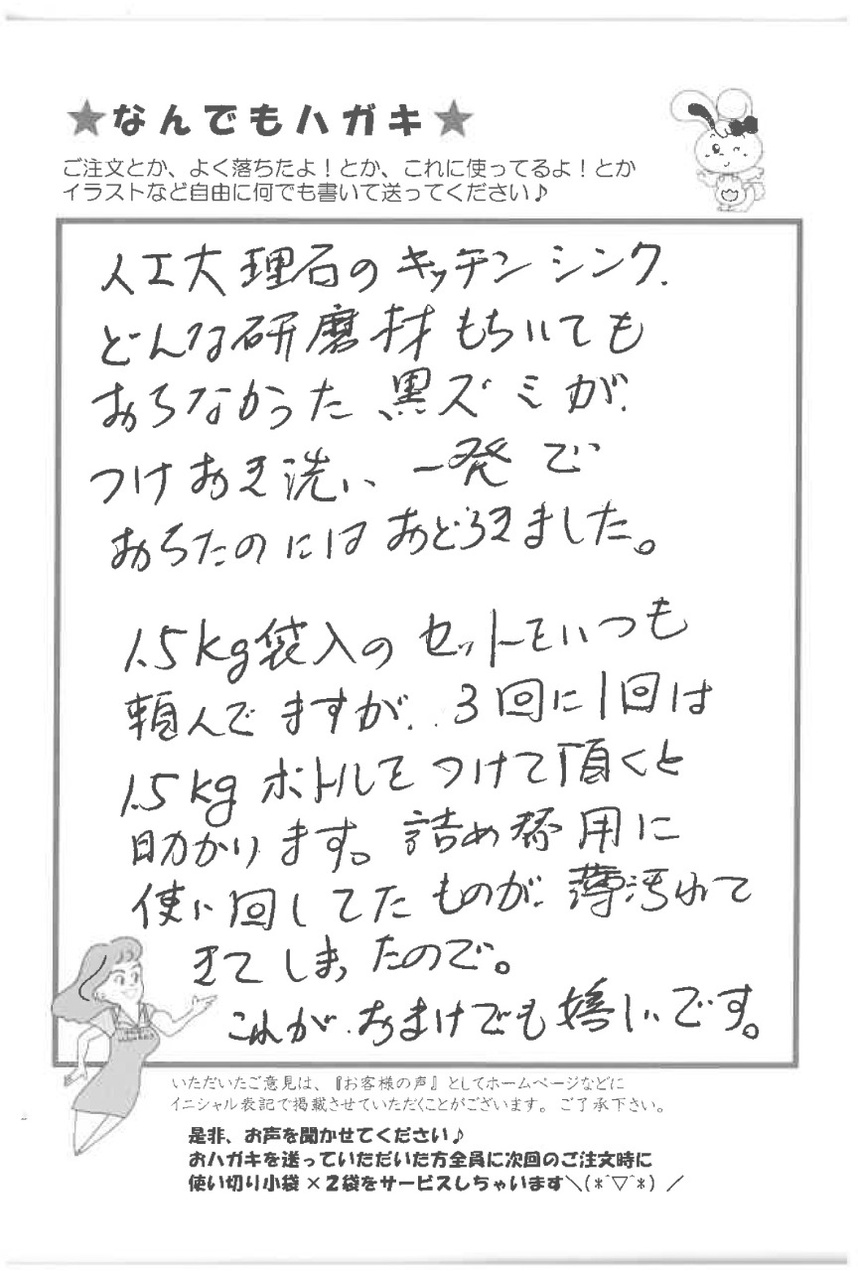 ★なんでもハガキ★
ご注文とか、よく落ちたよ！とか、これに使ってるよ！とか
イラストなど自由に何でも書いて送ってください♪
人工大理石のキッチンシンク、
どんな研磨材もちいても
おちなかった黒ズミが、
つけおき洗い、一発で
おちたのにはおどろきました。
1.5kg袋入のセットをいつも
頼んでますが、3回に1回は
1.5kgボトルをつけて頂くと
助かります。詰め替用に
使い回してたものが、薄汚れて
きてしまったので。
これが、おまけでも嬉しいです。
いただいたご意見は、『お客様の声』としてホームページなどに
イニシャル表記で掲載させていただくことがございます。ご了承下さい。
是非、お声を聞かせてください♪
おハガキを送っていただいた方全員に次回のご注文時に
使い切り小袋×2袋をサービスしちゃいます＼(*^▽^*)／